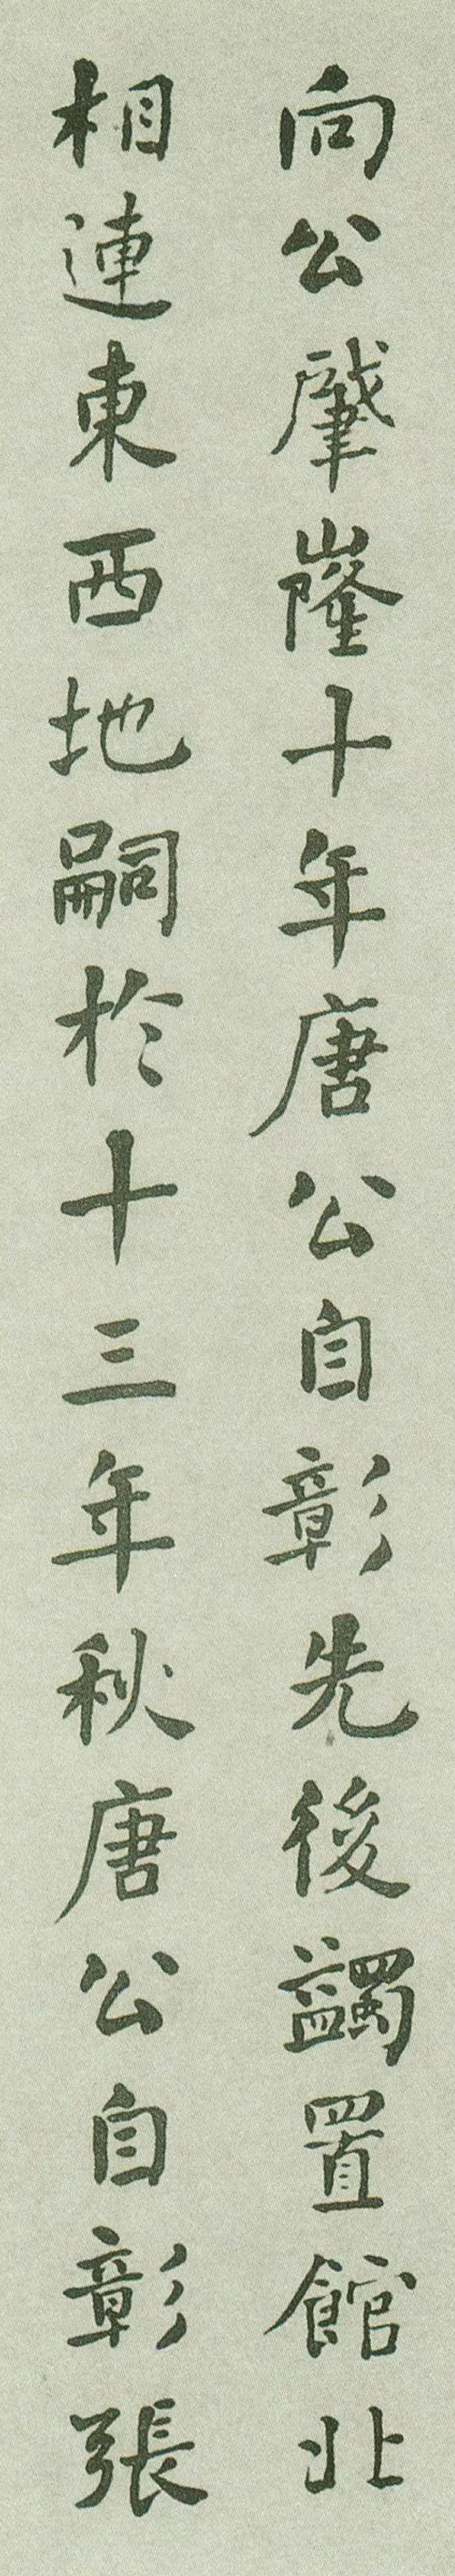 向公肇嶐十年唐公自彰先後蠲置館北
相連東西地嗣於十三年秋唐公自彰張